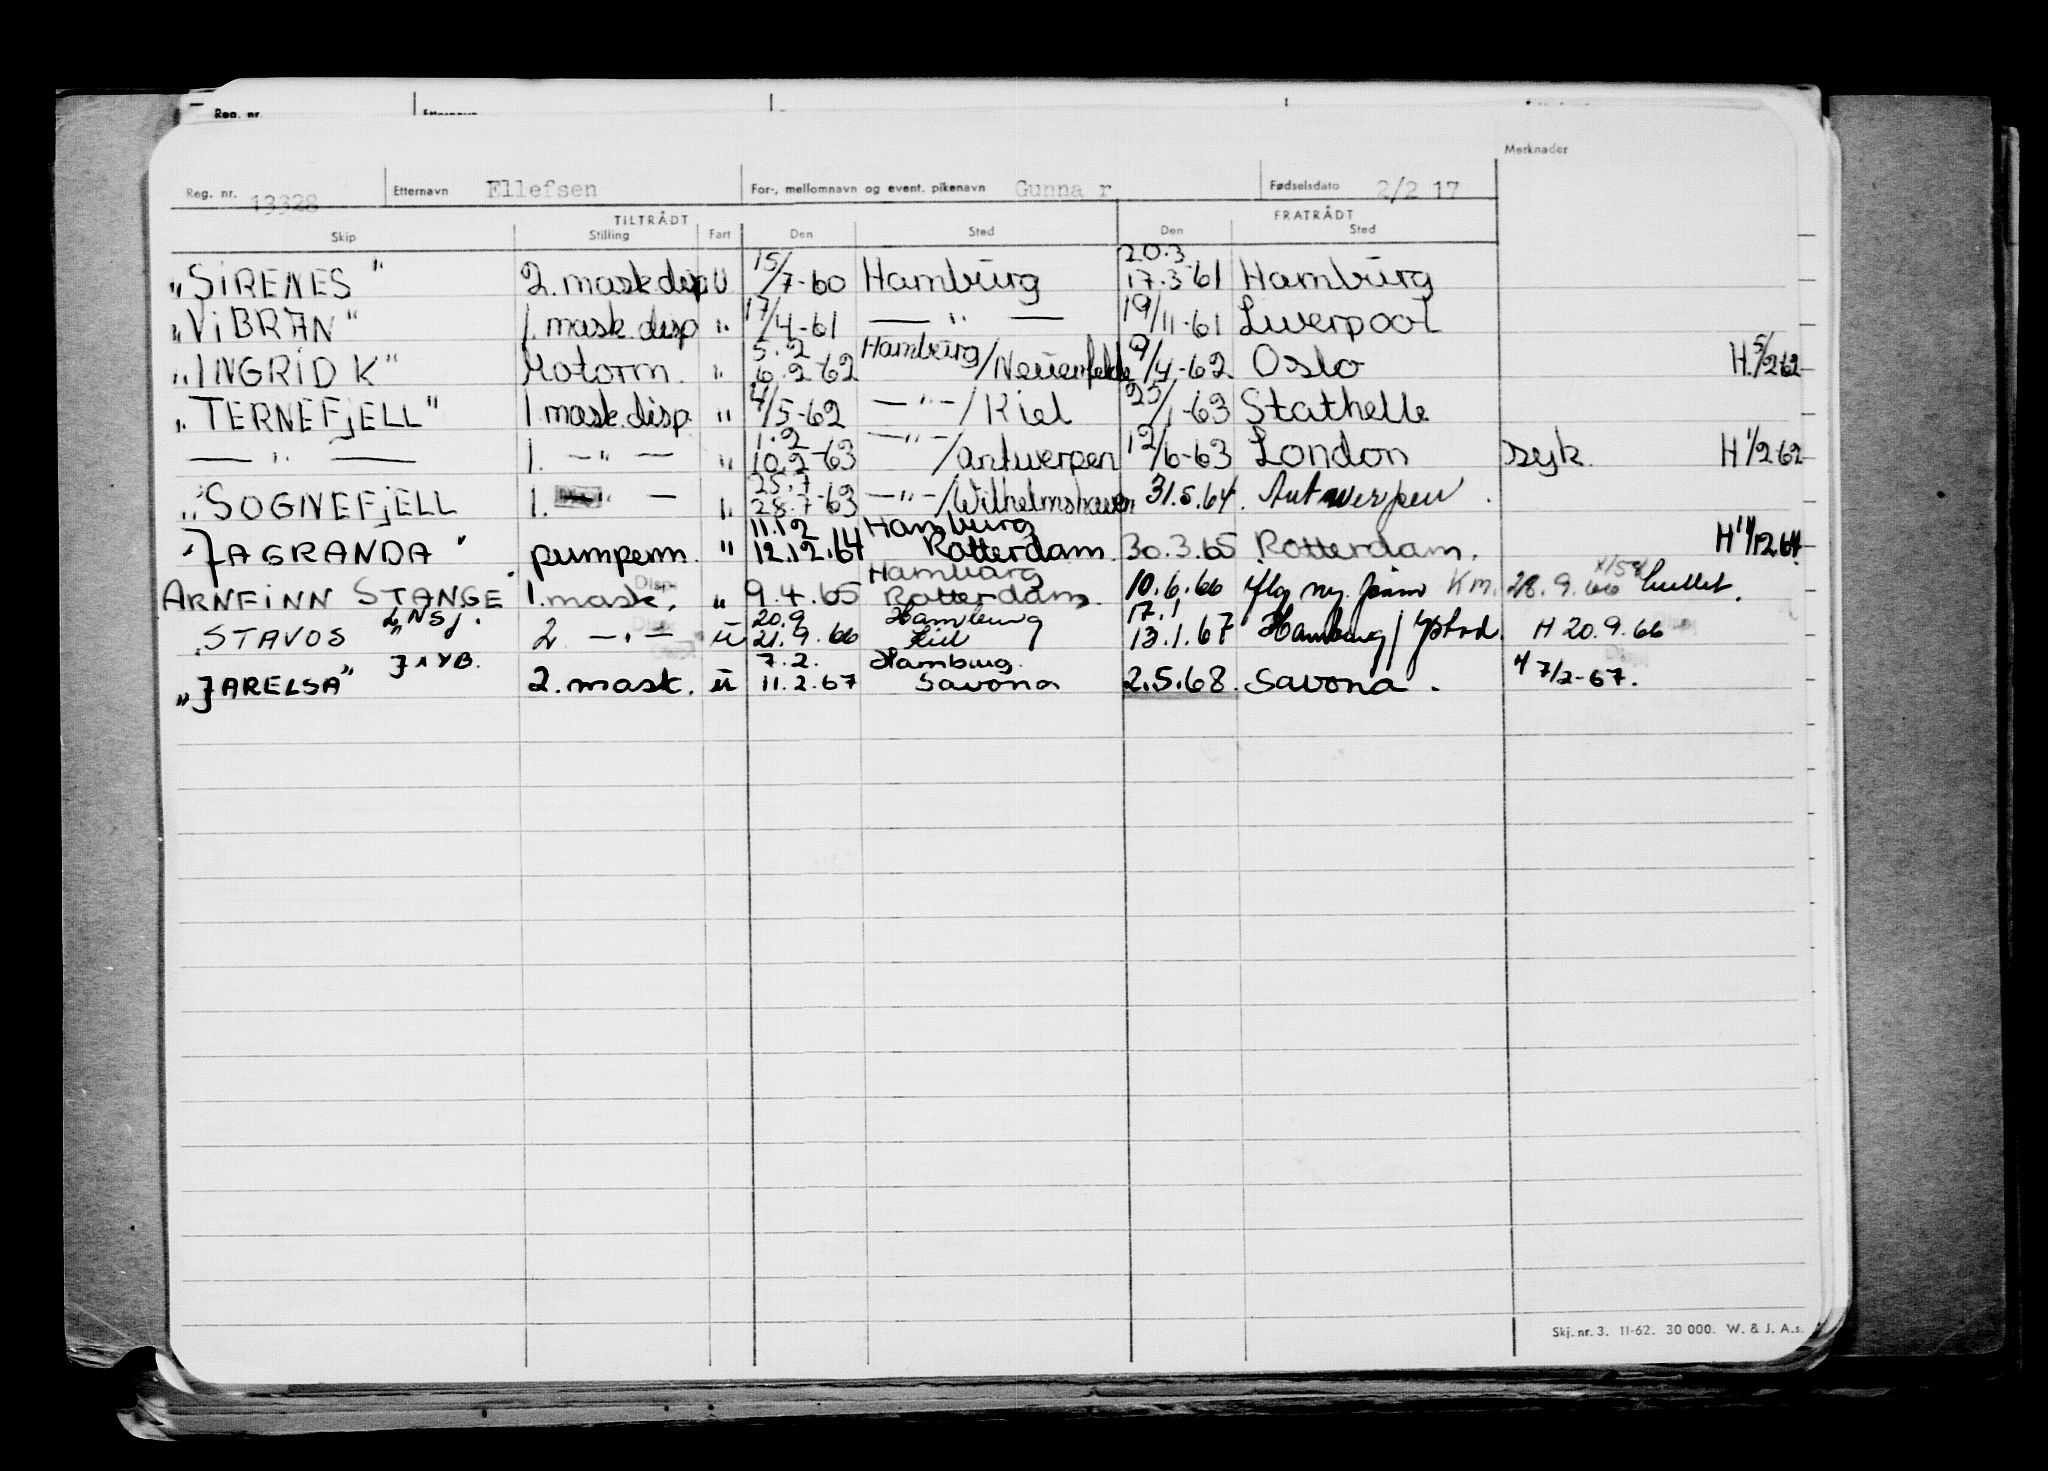 Reg. nr.
Merknader
Reg. nr. 13328 Etternavn Ellefsen For-, mellomnavn og event. pikenavn Gunna r Fødselsdato 2/2 17
TILTRÅDT FRATRÅDT
Skip Stilling Fart Den Sted Den Sted
20.3
"SIRENES" 2. mask disp U 15/7-60 Hamburg 17.3 61 Hamburg
"VIBRAN" 1. mask. disp " 17/4-61 — " — 19/11-61 Liverpool
5.2
"INGRID K" Motorm. " 6.2 62 Hamburg/Neuenfelde 9/4-62 Oslo H. 5/2 62
"TERNEFJELL" 1. mask. disp. " 4/5-62 — " —/Kiel 25/1-63 Stathelle
1.2
— " — 1. — " — " 10.2-63 — " —/Antwerpen 12/6-63 London syk. H 1/2 62
25.7
"SOGNEFJELL 1. " — " 28.7-63 — " —/Wilhelmshaven 31.5.64. Antwerpen.
11.12 Hamburg
"JAGRANDA" pumpem. " 12.12.64 Rotterdam. 30.3.65 Rotterdam. H 11/12.64.
Hamburg
ARNFINN STANGE 1. mask. Disp. " 9.4.65 Rotterdam. 10.6.66 iflg ny. Km. 28.9.66
L NSJ. 20.9 Hamburg 17.1
STAVOS " 2. — " — ü 21.9.66 Kiel 13.1.67 Hamburg/ H 20.9.66
7.2. Hamburg.
"JARELSA" 2. mask. ü 11.2.67 Savona 2.5.68. Savona. H 7/2-67.
Skj. nr. 3. 11-62. 30 000. W. & J. A.s.